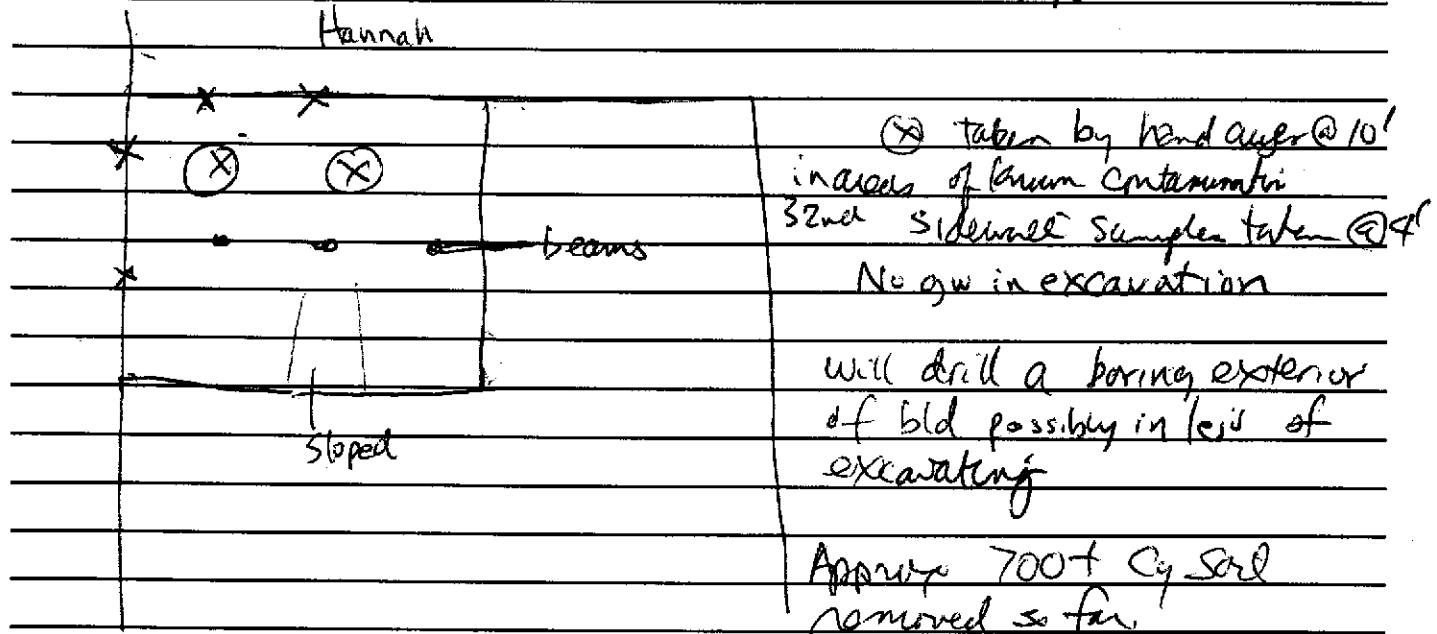 Hannah
ⓧ taken by hand auger @ 10'
in areas of known contaminatin
32nd
Sidewall samples taken @ 4'
beams
No gw in excavation
will drill a boring exterior
of bld possibly in leiu of
excavating
Sloped
Approx 700+ Cy Soil
removed so far